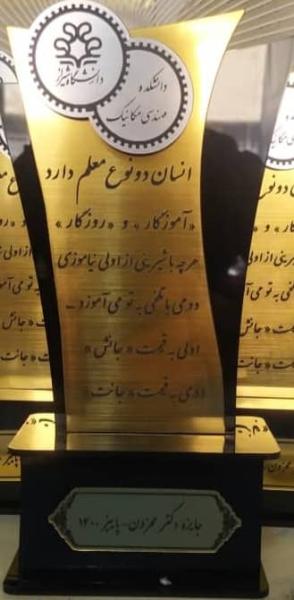 دانشگاه شیراز
دانشکده
مهندسی مکانیک
انسان دو نوع معلم دارد
«آموزگار» و «روزگار»
هرچه با شیرینی از اولی نیاموزی
دومی با تلخی به تو می آموزد
اولی به قیمت «جانش»
دومی به قیمت «جانت»
جایزه دکتر محزون - پاییز ۱۴۰۰